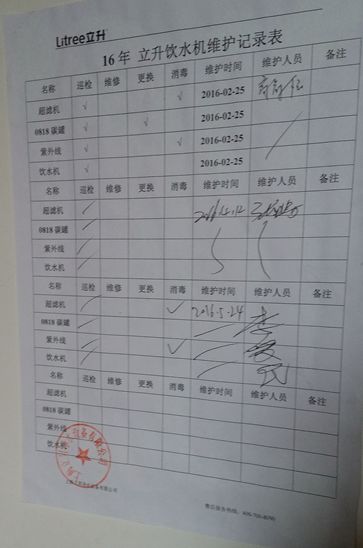 Litree立升
16 年 立升饮水机维护记录表
名称 巡检 维修 更换 消毒 维护时间 维护人员 备注
超滤机 √ √ 2016-02-25
0818 碳罐 √ √ 2016-02-25
紫外线 √ √ 2016-02-25
饮水机 √ 2016-02-25
名称 巡检 维修 更换 消毒 维护时间 维护人员 备注
超滤机
0818 碳罐
紫外线
饮水机
名称 巡检 维修 更换 消毒 维护时间 维护人员 备注
超滤机 √ 2016.5.24
0818 碳罐
紫外线 √
饮水机
名称 巡检 维修 更换 消毒 维护时间 维护人员 备注
超滤机
0818 碳罐
紫外线
饮水机